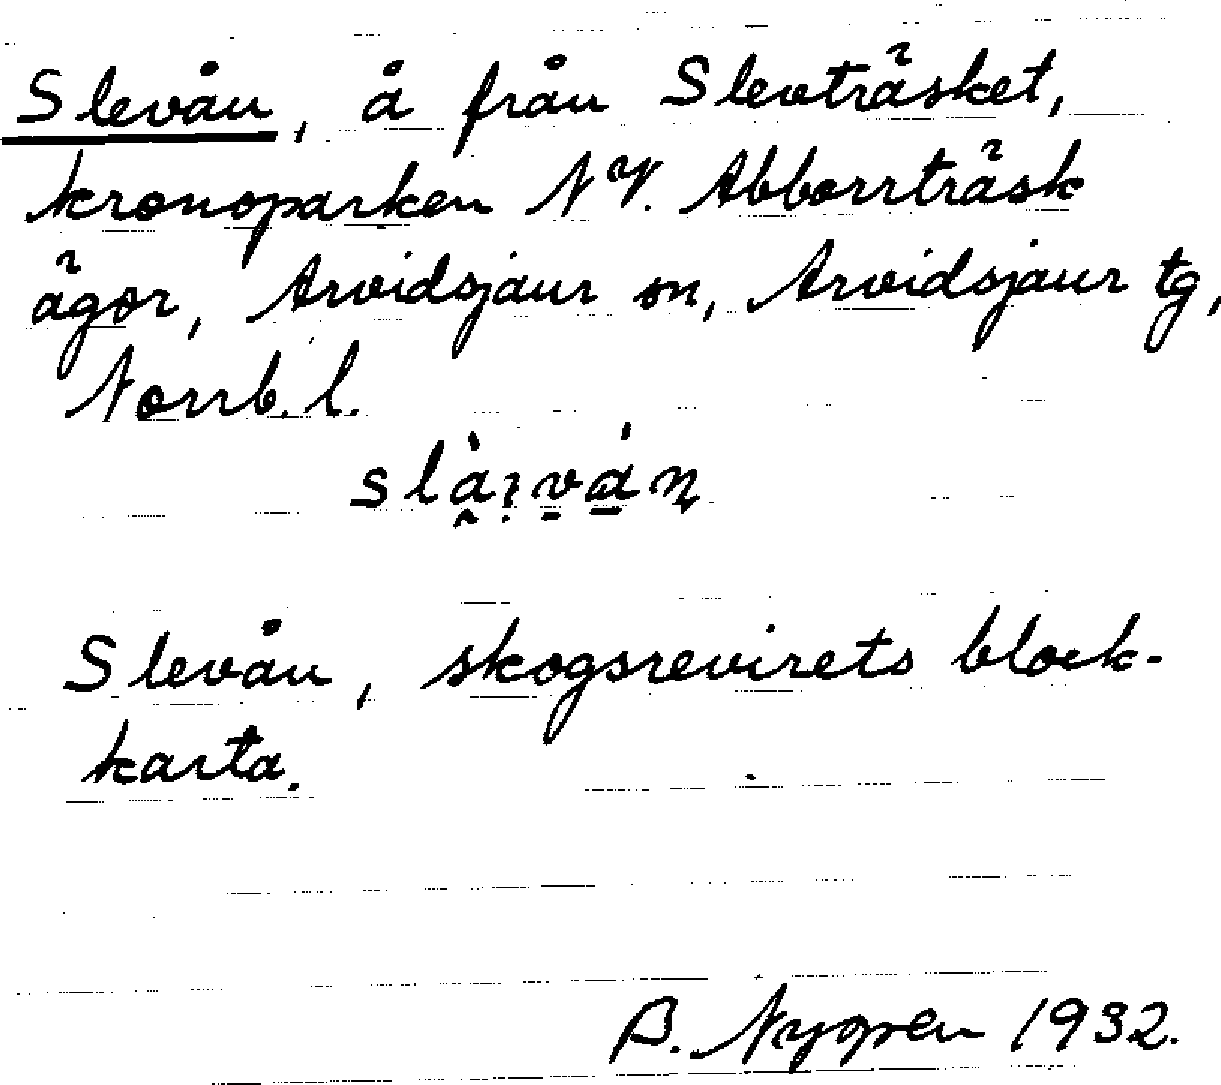 Slevån, å från Slevträsket,
kronoparken NV. Abborrträsk
ägor, Arvidsjaur sn, Arvidsjaur tg,
Norrb. l.
Slevån, skogsrevirets block-
karta.
B. Nygren 1932.